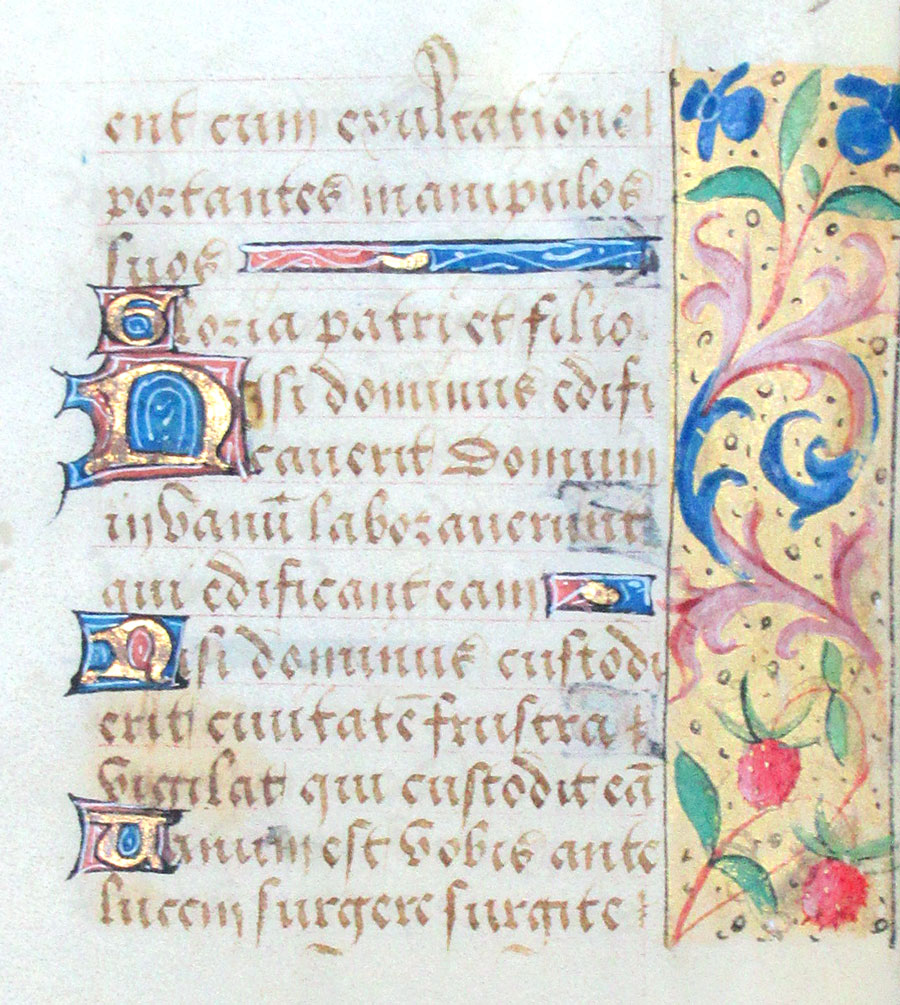 ent cum exultatione
portantes manipulos
suos
Gloria patri et filio
Nisi dominus edifi
cauerit Domum
in vanū laborauerunt
qui edificant eam
Nisi dominus custodi
erit ciuitatē frustra
vigilat qui custodit eā
Vanum est vobis ante
lucem surgere surgite